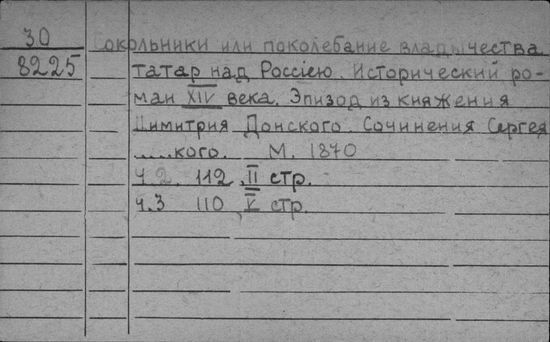 30
8225
Сокольники или поколебание владычества
татар над Россіею. Исторический ро-
ман XIV века. Эпизод из княжения
Димитрия Донского. Сочинения Сергея
.....кого. М. 1870
ч.2. 112, II стр.
ч.3 110, V стр.